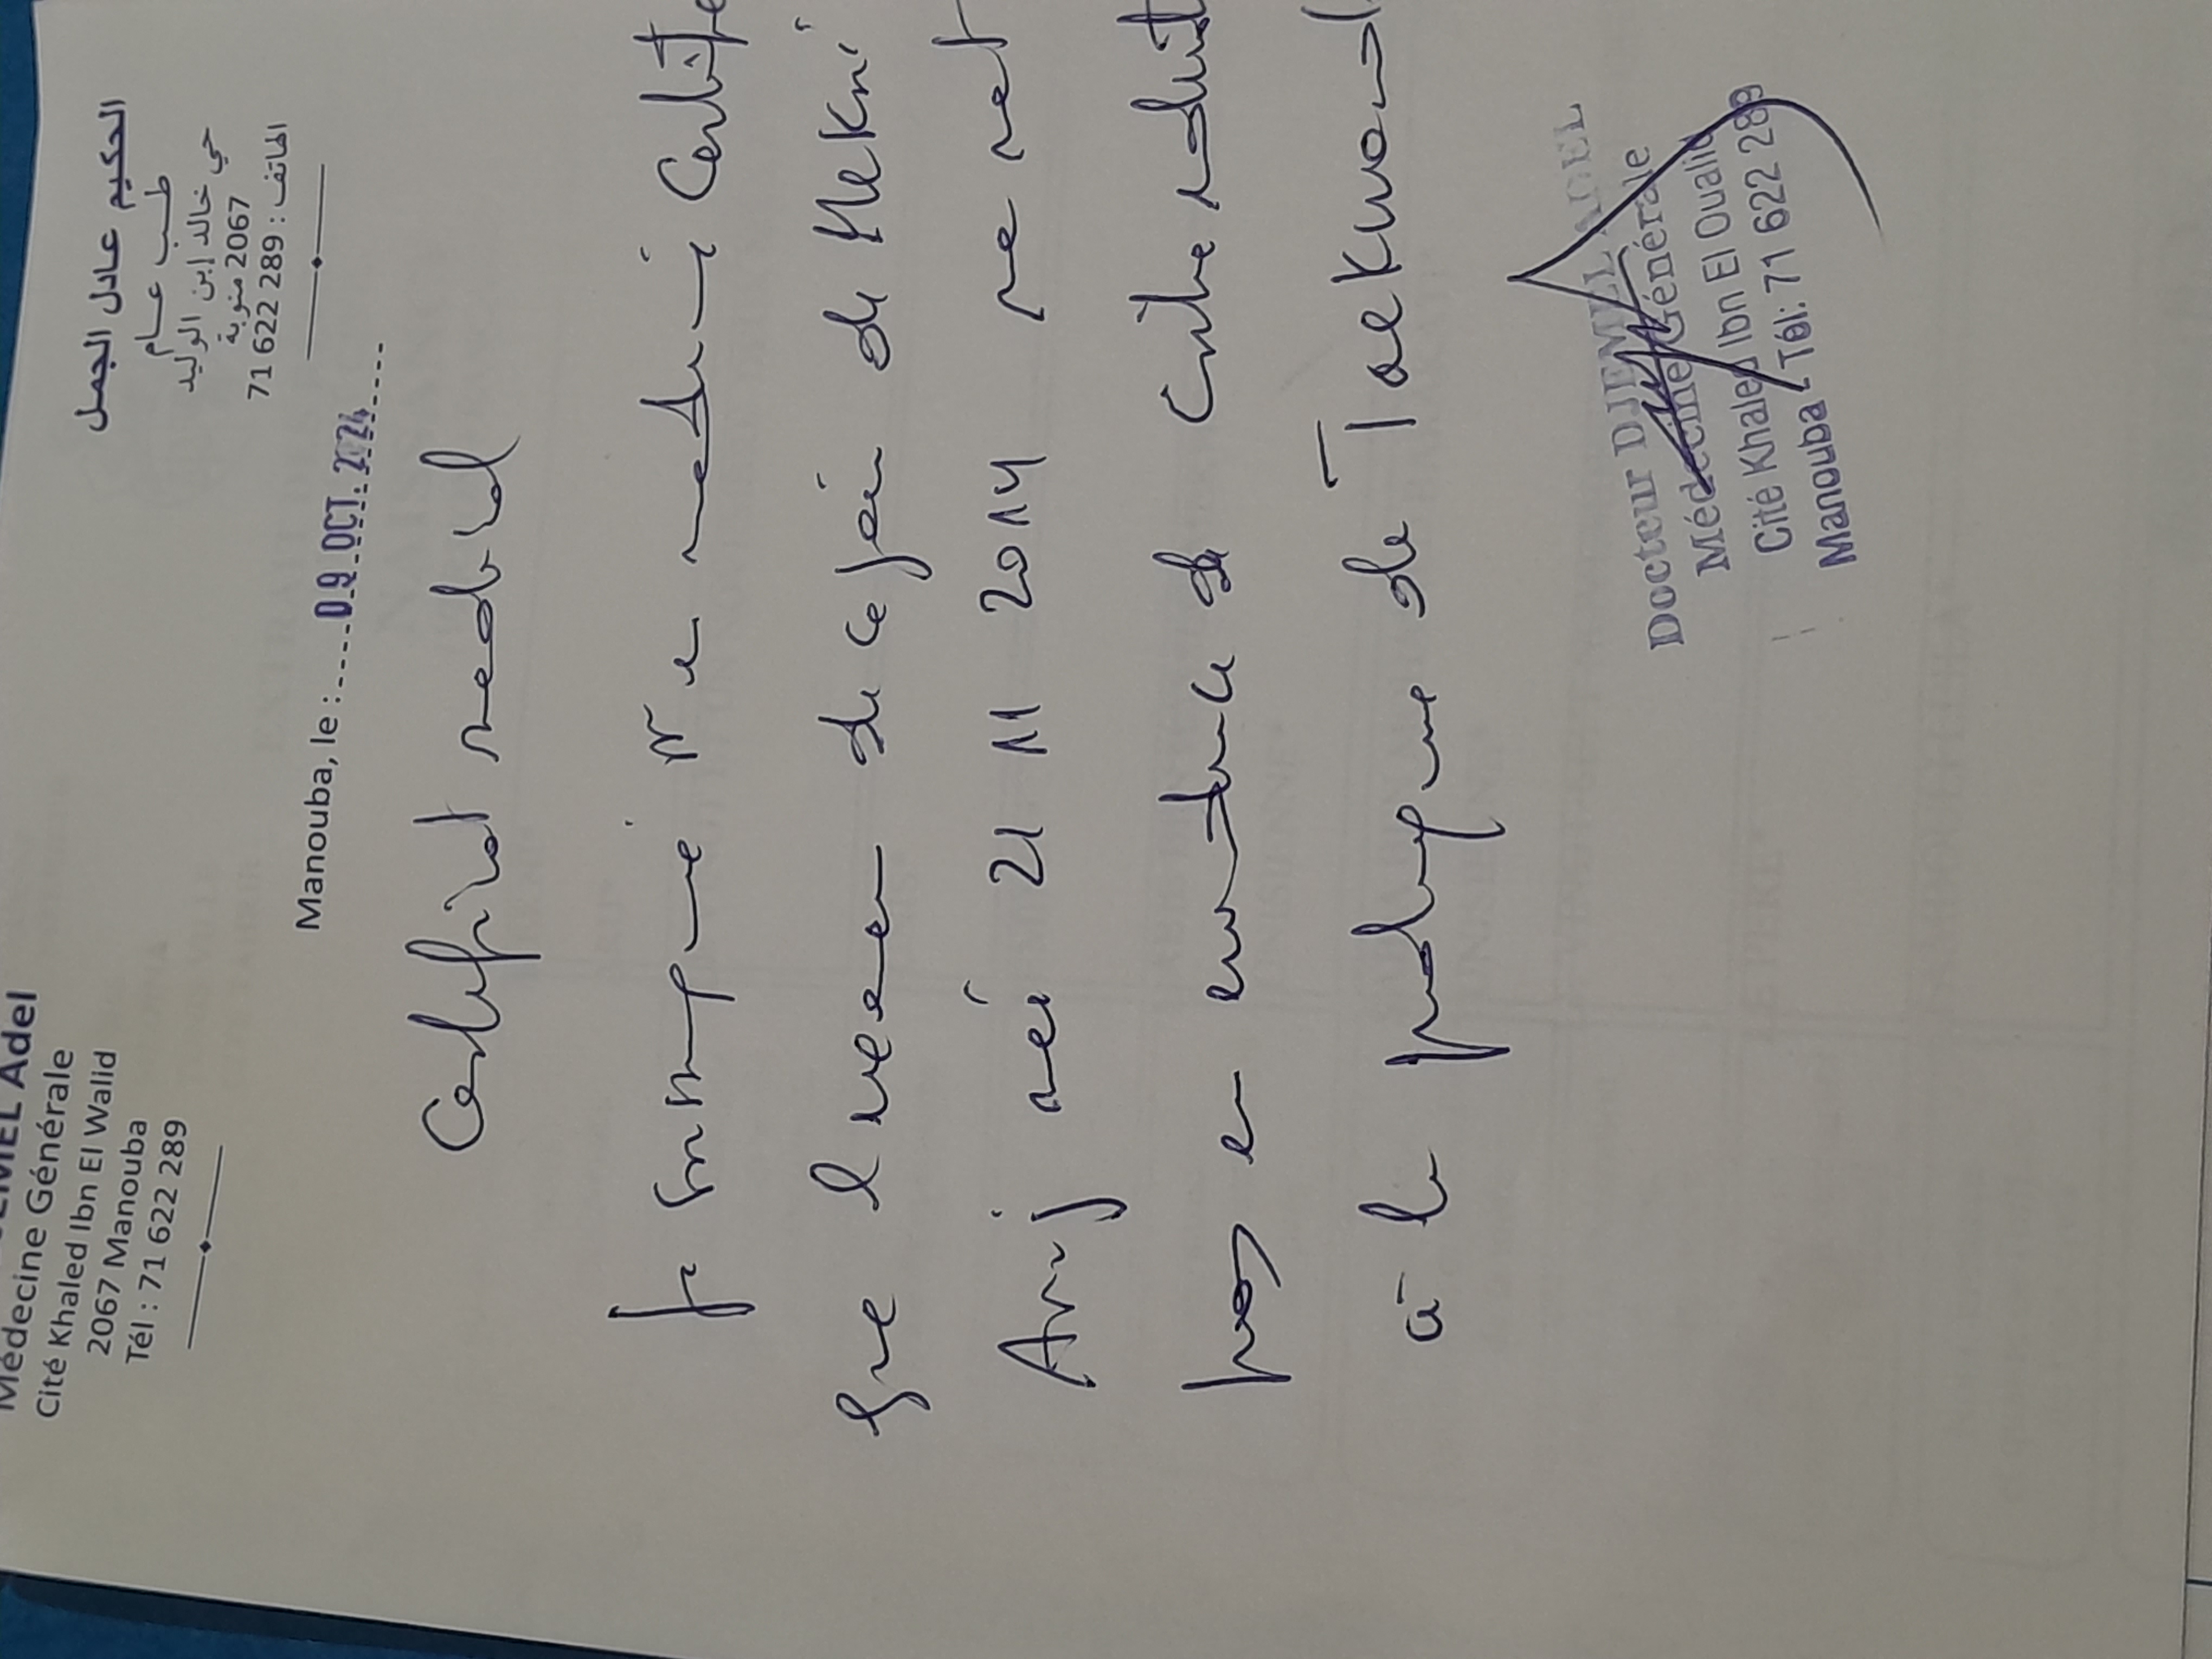 DJEMIEL Adel
Médecine Générale
Cité Khaled Ibn El Walid
2067 Manouba
Tél : 71 622 289
الحكيم عادل الجمل
طب عام
حي خالد إبن الوليد
2067 منوبة
الهاتف : 71 622 289
Manouba, le : 09 OCT. 2024
Certificat medical
Je soussigné Dr en medecine Certifie
que l'examen de ce jour de Mekni
né 21 11 2014 ne met
pas en evidence de contre indicat
à la pratique de Taekwond
Docteur DJEMIEL ADEL
Médecine Générale
Cité Khaled Ibn El Oualid
Manouba - Tél: 71 622 289